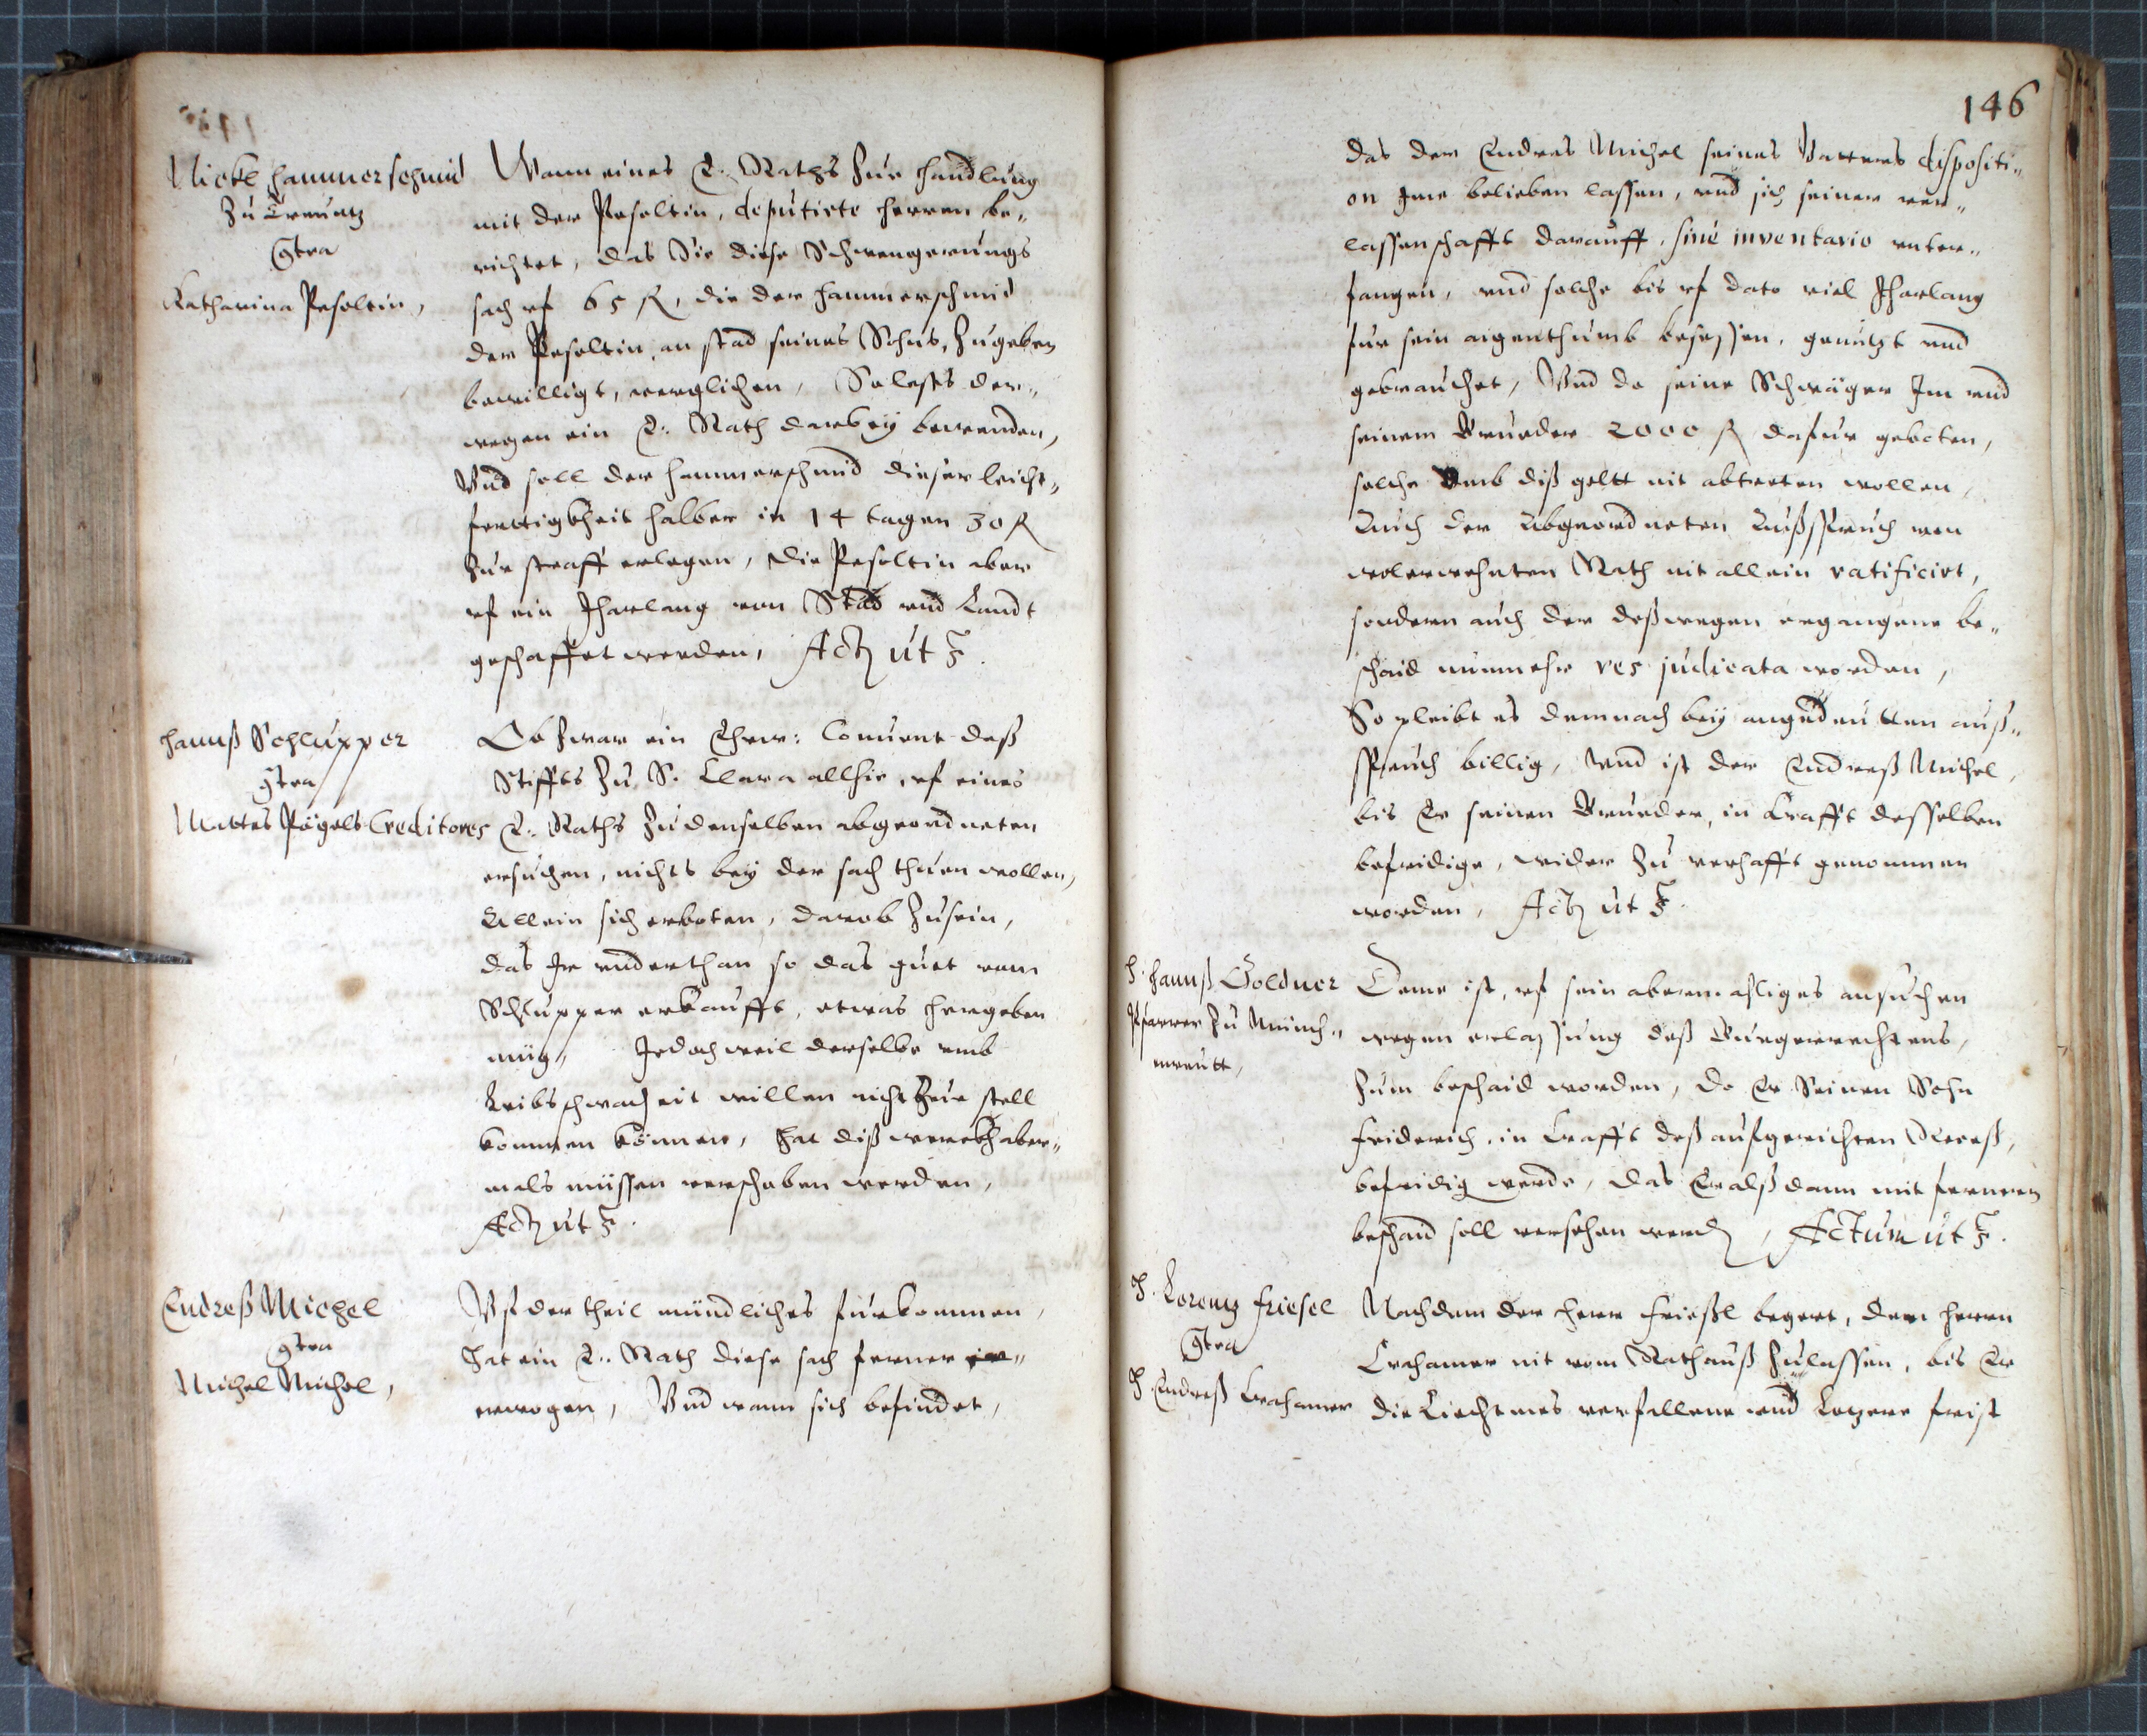 Nickl Hammerschmid
Zu Creuntz
Contra
Katharina Pesoltin,
Wann eines E. Raths zur handlung
mit der Pesoltin, deputirte herren be„
richtet, das Sie diese Schwengerungs
sach vf 65 fl, die der Hammerschmid
der Pesoltin, an stad seines Sohns, zugeben
bewilligt, verglichen, So lests der„
wegen ein E. Rath darbey bewenden,
Vnd soll der Hammerschmid dieser leicht„
fertigkheit halber in 14 tagen 30 fl
zur straff erlegen, die Pesoltin aber
vf ein Jharlang von Stad vnd Landt
geschaffet werden, Act. ut s.
Hannß Schlupper
contra
Mattes Pögels Creditores
Ob zwar ein Ehrw: Conuent deß
Stiffts zu S. Clara allhie, vf eines
E. Raths zu denselben abgeordneten
ersuchen, nichts bey der sach thuen wollen,
Allein sich erboten, darob zusein,
das Ir vnderthan so das guet vom
Schlupper erkaufft, etwas hergeben
müg, Jedoch weil derselbe vmb
Leibsschwacheit willen nicht zur stell
kommen können, hat diß werckh aber„
mals müssen verschoben werden,
Act. ut s.
Endreß Michel
contra
Michel Michel,
Vf der theil mündliches fürkommen,
hat ein E. Rath diese sach ferner
erwogen, Vnd wann sich befindet,
146
das der Endres Michel seines Vatters dispositi„
on Ime belieben lassen, vnd sich seiner ver„
lassenschafft darauff, sine inventario vnter„
fangen, vnd solche bis vf dato viel Jharlang
fur sein aigenthumb besessen, genutzt vnd
gebrauchet, Vnd da seine Schwäger Im vnd
seinem Bruder 2000 fl dafur geboten,
solche vmb diß geltt nit abtretten wollen,
Auch der Abgeordneten Außspruch von
wolerwehnten Rath nit allein ratificirt,
sondern auch der deßwegen ergangene be„
schaid nunmehr res judicata worden,
So pleibt es demnach bey angedeutten auß„
spruch billig, Vnd ist der Endreß Michel,
bis Er seinen Brueder, in Krafft desselben
befridige, wider zu verhafft genommen
worden, Act. ut s.
H. Hannß Goldner
Pfarrer zu Münch„
nreutt,
Deme ist, vf sein abermahliges ansuchen
wegen erlassung deß Burgerrechtens,
zum beschaid worden, do Er Seinen Sohn
Friderich, in Krafft deß aufgerichten Receß,
befridig werde, das Er alßdann mit fernern
beschaid soll versehen werden, Actum ut s.
H. Lorentz Friesel
Contra
H. Endreß Crahamer
Nachdem der Herr Frießl begert, dem Herrn
Crahamer nit vom Rathauß zulassen, bis Er
die Liechtmes verfallene vnd Letzere frist